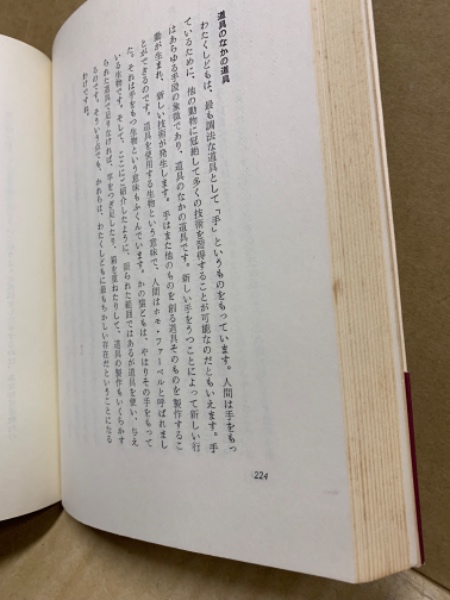 道具のなかの道具
わたくしどもは、最も調法な道具として「手」というものをもっています。人間は手をもっ
ているために、他の動物に冠絶して多くの技術を習得することが可能なのだともいえます。手
はあらゆる手段の象徴であり、道具のなかの道具です。新しい手をうつことによって新しい行
動が生まれ、新しい技術が発生します。手はまた他のものを創る道具そのものを製作するこ
とができるのです。道具を使用する生物という意味で、人間はホモ・ファーベルと呼ばれまし
た。それは手をもつ生物という意味もふくんでいます。かの猿どもは、やはりその手をもって
いる生物です。そして、ここにご紹介したように、限られた範囲ではあるが道具を使い、与え
られた道具で足りなければ、竿をつぎ足したり、箱を重ねたりして、道具の製作もいくらかす
るのです。そういう点でも、かれらは、わたくしどもに最もちかしい存在だということになる
わけですね。
224